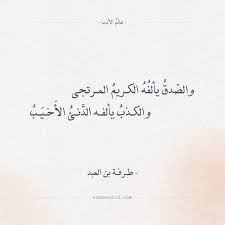 - عالم الأدب -
والصّدقُ يألفُهُ الكريمُ المرتجى
والكذبُ يألفه الدَّنيُّ الأَخيَبُ
- طرفة بن العبد -